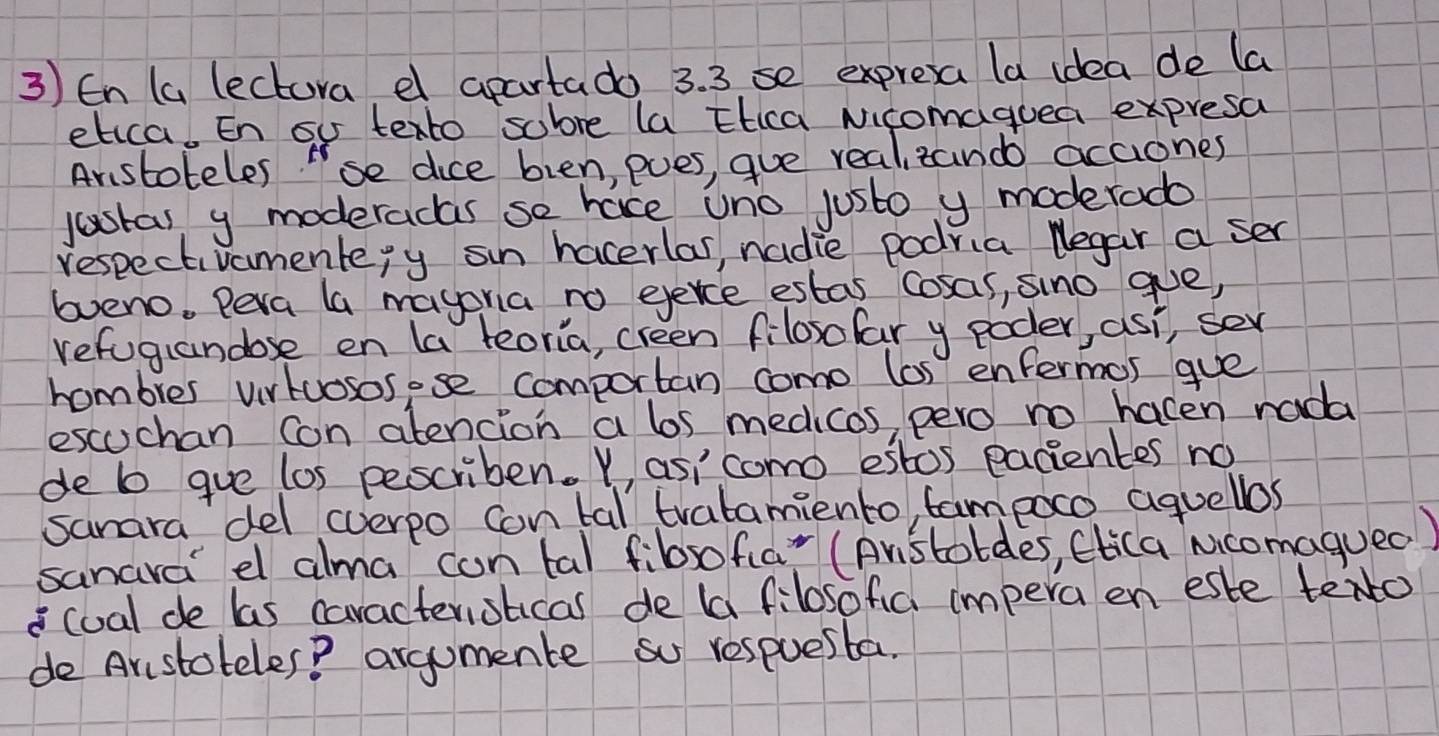 3) En la lectura el apartado 3.3 se expresa la idea de la
etica. En su texto sobre la Etica Nicomaquea expresa
Aristoteles "se dice bien, pues, que realizando acciones
justas y moderadas se hace uno justo y moderado
respectivamente; y sin hacerlas, nadie podria llegar a ser
bueno. Pera la mayoria no ejerce estas cosas, sino que,
refugiandose en la teoría, creen filosofar y poder, así, ser
hombres virtuosos: se comportan como los enfermos que
escuchan con atención a los medicos, pero no hacen nada
de lo que los pescriben. Y, así como estos pacientes no
sanara del cuerpo con tal tratamiento, tampoco aquellos
sanará el alma con tal filosofia" (Aristoteles, Etica Nicomaquea)
¿Cual de las caracteristicas de la filosofia impera en este texto
de Aristoteles? argumente su respuesta.